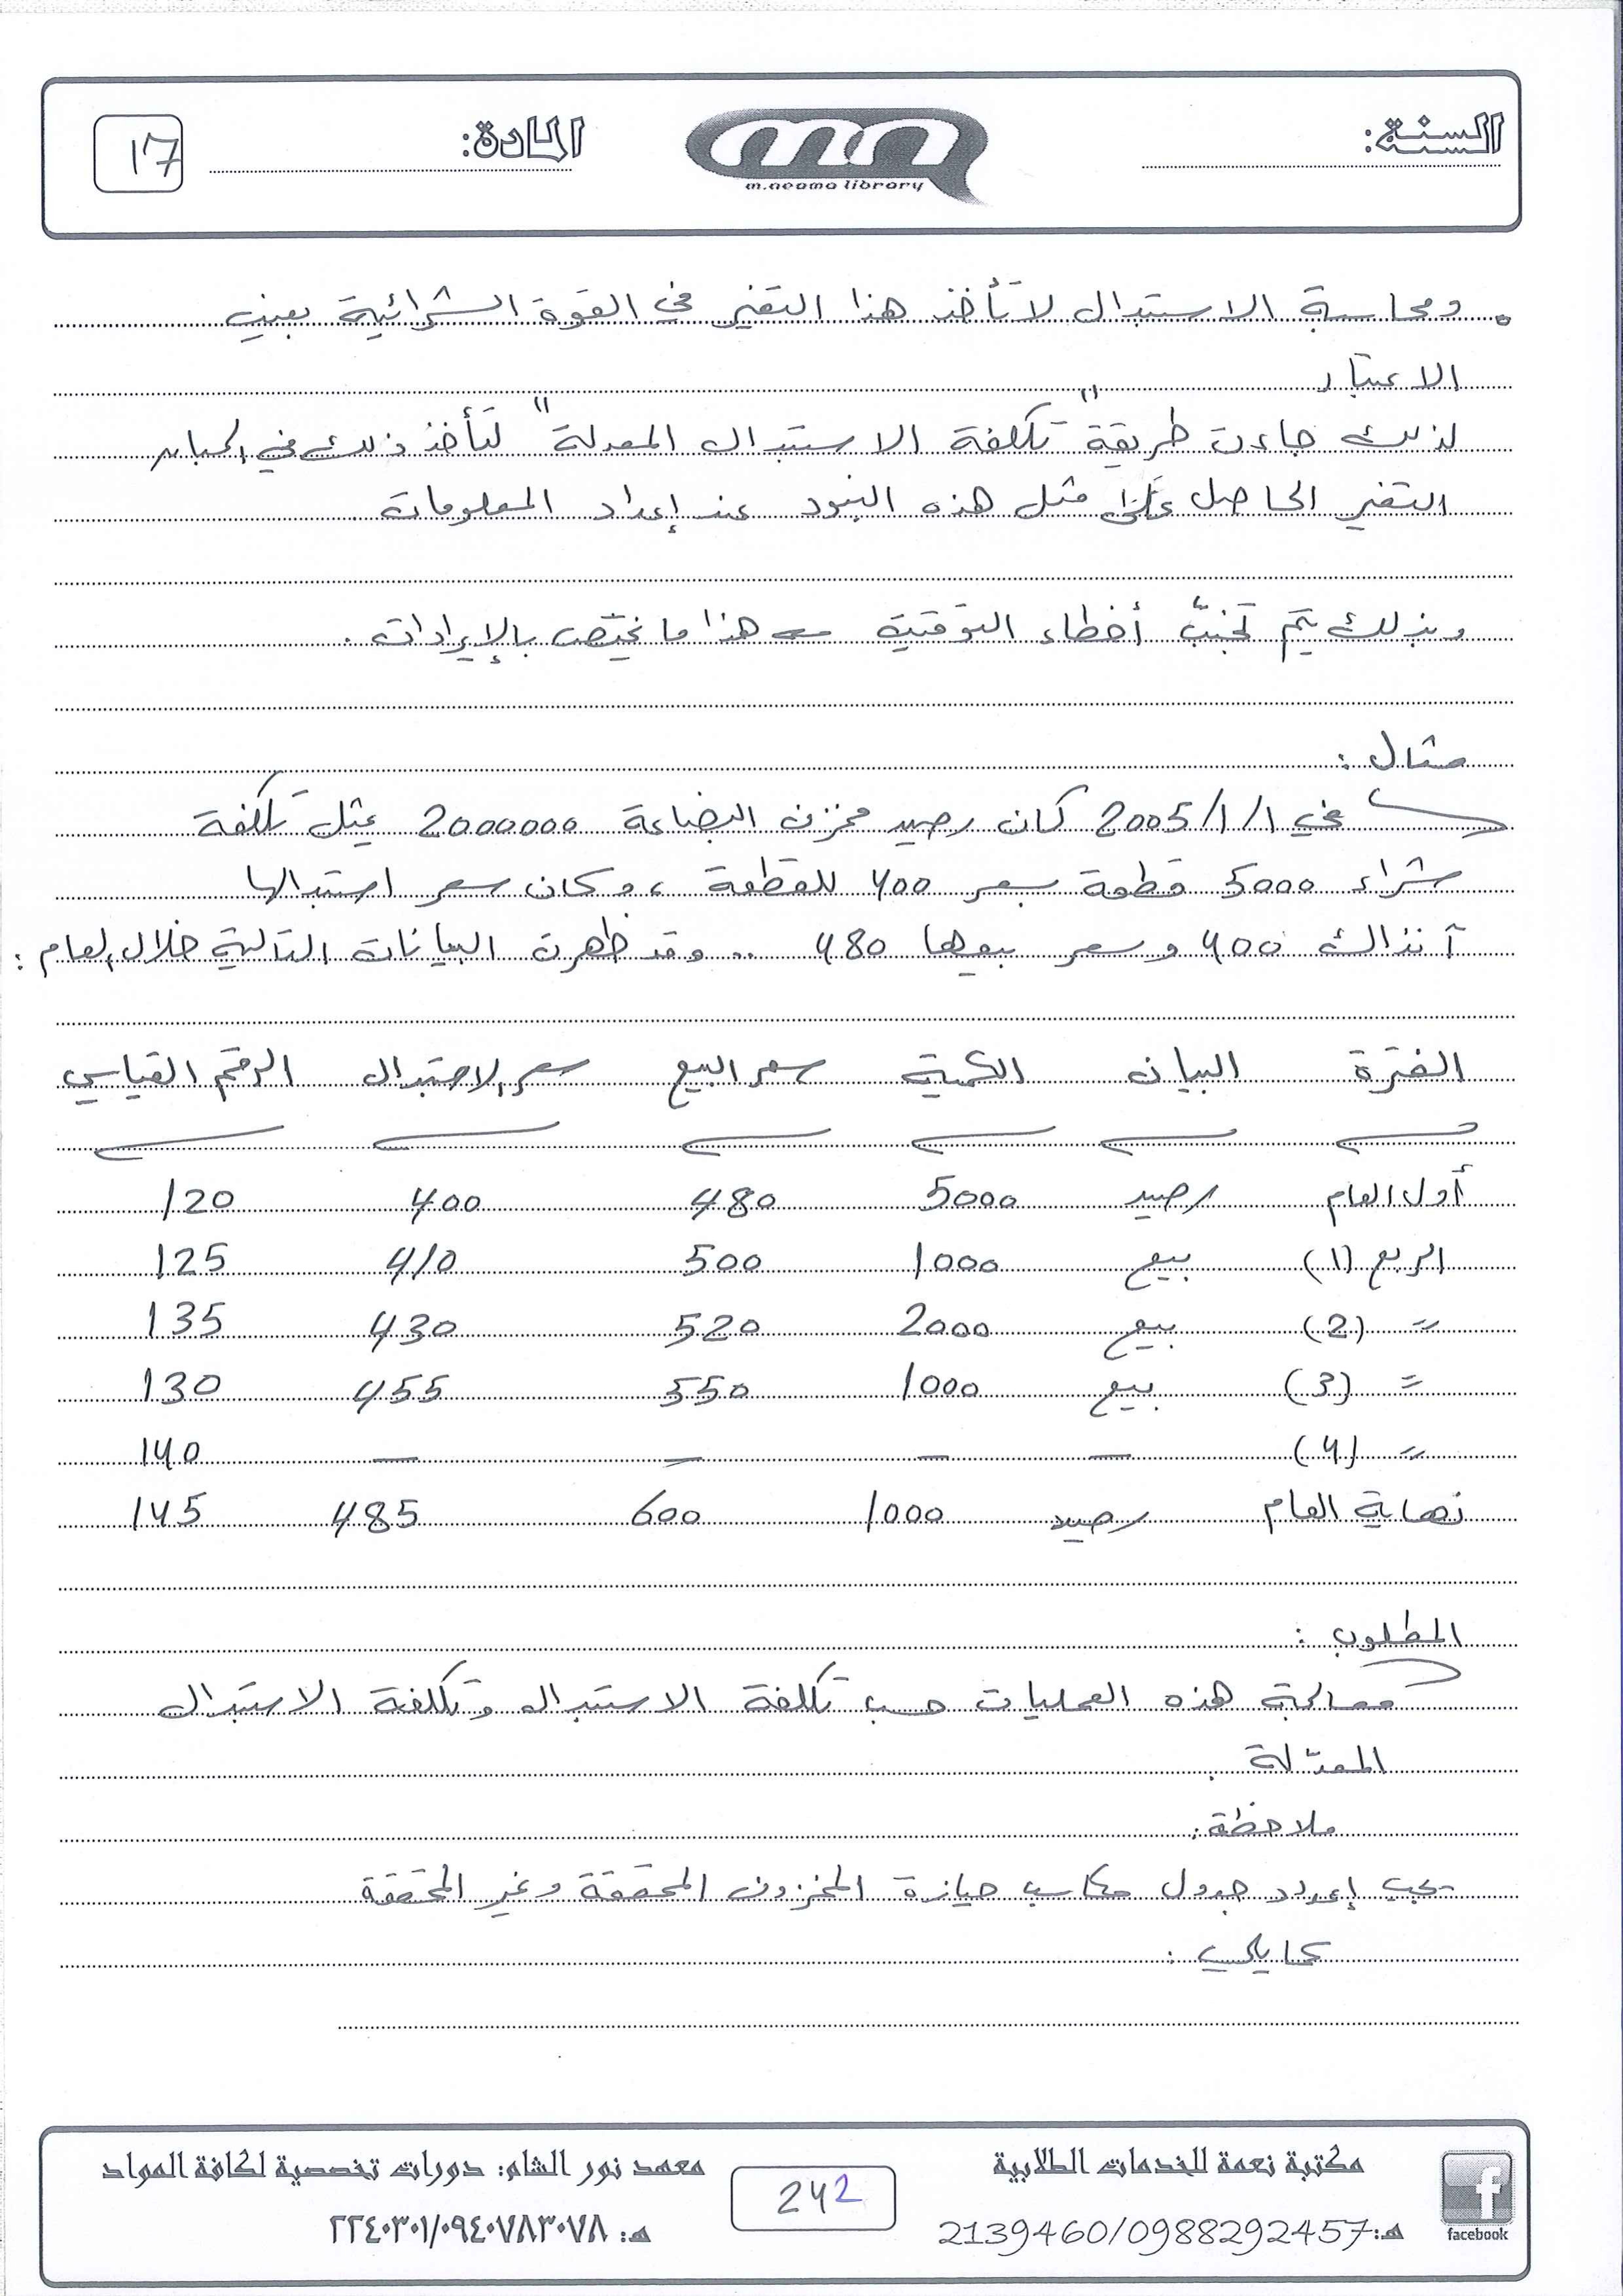 السنة:
mn
m.neama library
المادة:
17
. ومحاسبة الاستبدال لا تأخذ هذا التغير في القوة الشرائية بعين
الاعتبار
لذلك جاءت طريقة "تكلفة الاستبدال المعدلة" لتأخذ ذلك في الحسبان
التغير الحاصل على مثل هذه البنود عند إعداد المعلومات
وبذلك يتم تجنّب أخطاء التوقيت ← هذا ما يختص بالإيرادات .
مثال :
في 2005/1/1 كان رصيد مخزن البضاعة 2000000 يمثل تكلفة
شراء 5000 قطعة بسعر 400 للقطعة ، وكان سعر استبدالها
آنذاك 400 وسعر بيعها 480 .. وقد ظهرت البيانات التالية خلال العام :
الفترة البيان الكمية سعر البيع سعر الاستبدال الرقم القياسي
أول العام رصيد 5000 480 400 120
الربع (1) بيع 1000 500 410 125
= (2) بيع 2000 520 430 135
= (3) بيع 1000 550 455 130
= (4) — — — — 140
نهاية العام رصيد 1000 600 485 145
المطلوب :
معالجة هذه العمليات حسب تكلفة الاستبدال وتكلفة الاستبدال
المعدّلة .
ملاحظة :
يجب إعداد جدول مكاسب حيازة المخزون المحققة وغير المحققة
كما يلي :
facebook
مكتبة نعمة للخدمات الطلابية
هـ: 2139460/0988292457
242
معهد نور الشام: دورات تخصصية لكافة المواد
هـ: ٢٢٤٠٣٠١/٠٩٤٠٧٨٣٠٧٨